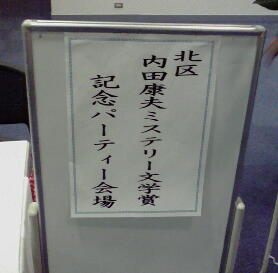 北区
内田康夫ミステリー文学賞
記念パーティー会場